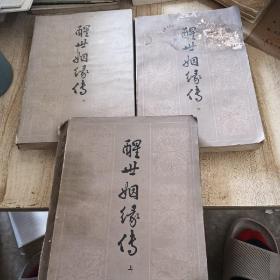 醒世姻缘传
醒世姻缘传
醒世姻缘传
上